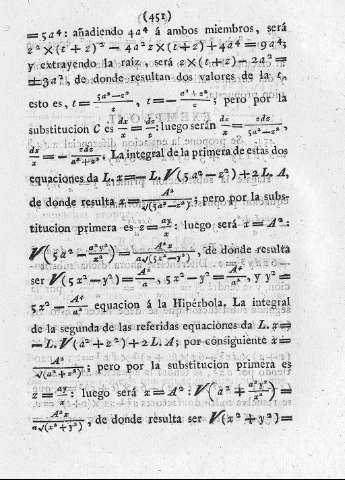 (451)
= 5a⁴: añadiendo 4a⁴ á ambos miembros, será
z² × (t + z)² — 4a²z × (t + z) + 4a⁴ = 9a⁴;
y extrayendo la raiz, será z × (t + z) — 2a² =
± 3a², de donde resultan dos valores de la t,
esto es, t = (5a² — z²)/z, t = — (a² + z²)/z; pero por la
substitucion C es dx/x = dz/t: luego serán dx/x = zdz/(5a² — z²),
dx/x = — zdz/(a² + z²). La integral de la primera de estas dos
equeciones da L. x = — L. √(5a² — z²) + 2L. A,
de donde resulta x = A²/√(5a² — z²); pero por la subs-
titucion primera es z = ay/x: luego será x = A²:
√(5a² — a²y²/x²) = A²x/a√(5x² — y²), de donde resulta
ser √(5x² — y²) = A²/a, 5x² — y² = A⁴/a², y y² =
5x² — A⁴/a² equacion á la Hipérbola. La integral
de la segunda de las referidas equaciones da L. x =
— L. √(a² + z²) + 2L. A; por consiguiente x =
A²/√(a² + z²): pero por la substitucion primera es
z = ay/x: luego será x = A²: √(a² + a²y²/x²) =
A²x/a√(x² + y²), de donde resulta ser √(x² + y²) =